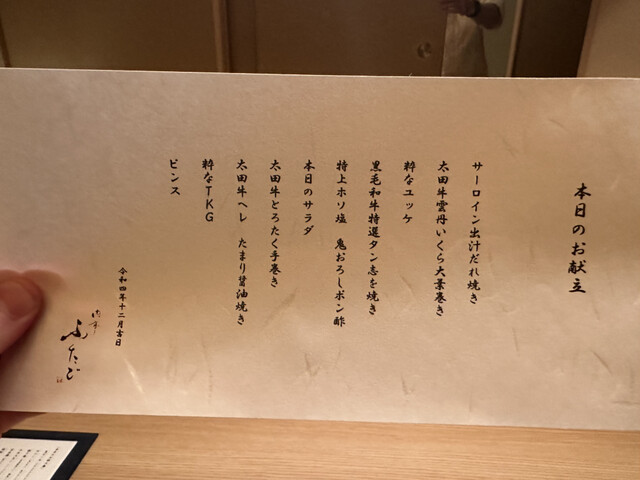 本日のお献立
サーロイン出汁だれ焼き
太田牛雲丹いくら大葉巻き
粋なユッケ
黒毛和牛特選タン志を焼き
特上ホソ塩　鬼おろしポン酢
本日のサラダ
太田牛とろたく手巻き
太田牛ヘレ　たまり醤油焼き
粋なTKG
ピンス
令和四年十二月吉日
ふたご